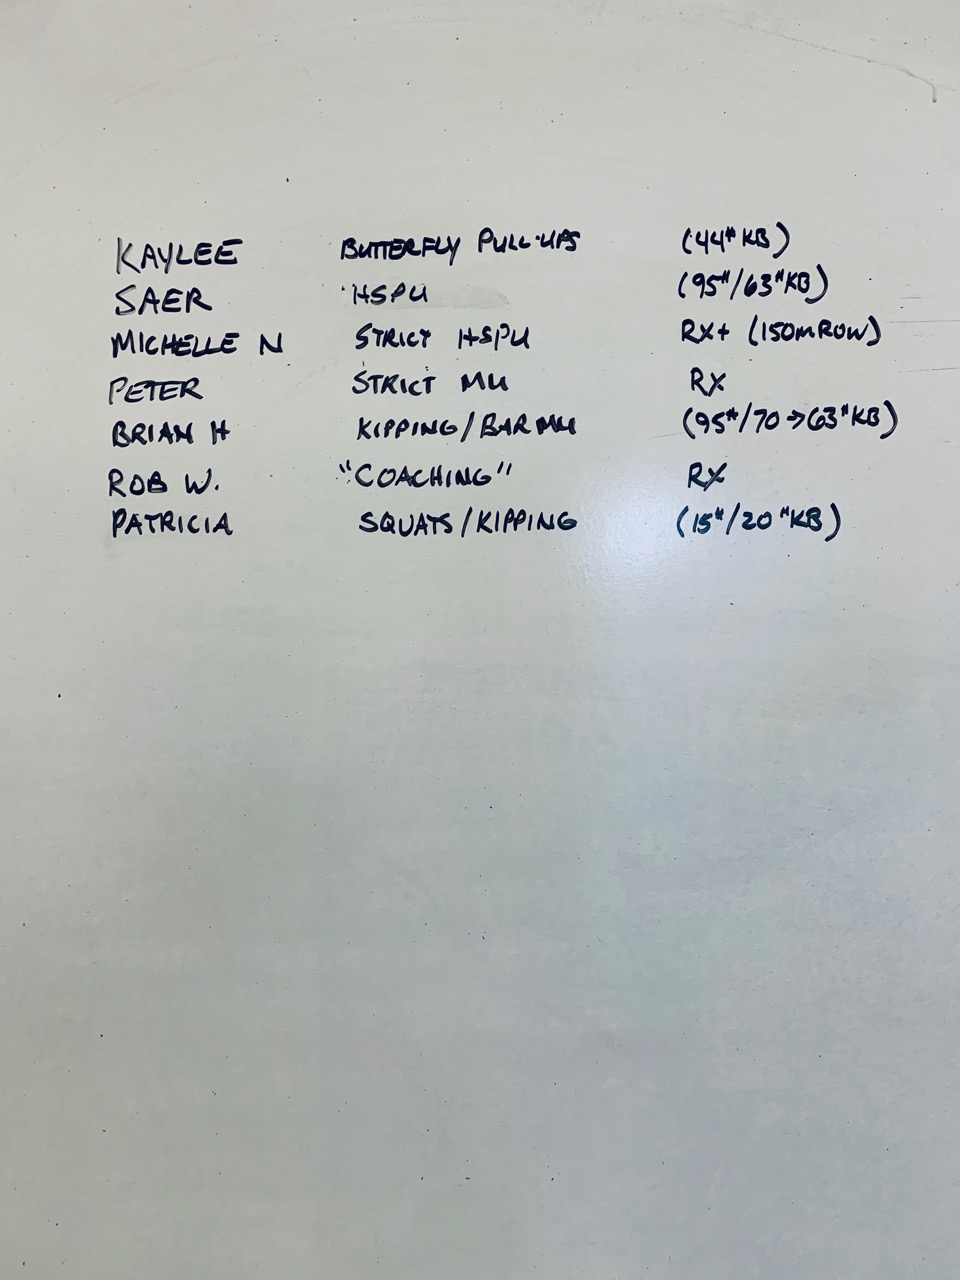 KAYLEE BUTTERFLY PULL-UPS (44# KB)
SAER HSPU (95#/63#KB)
MICHELLE N STRICT HSPU RX+ (150M ROW)
PETER STRICT MU RX
BRIAN H KIPPING/BAR MU (95#/70→63#KB)
ROB W. "COACHING" RX
PATRICIA SQUATS/KIPPING (15#/20#KB)